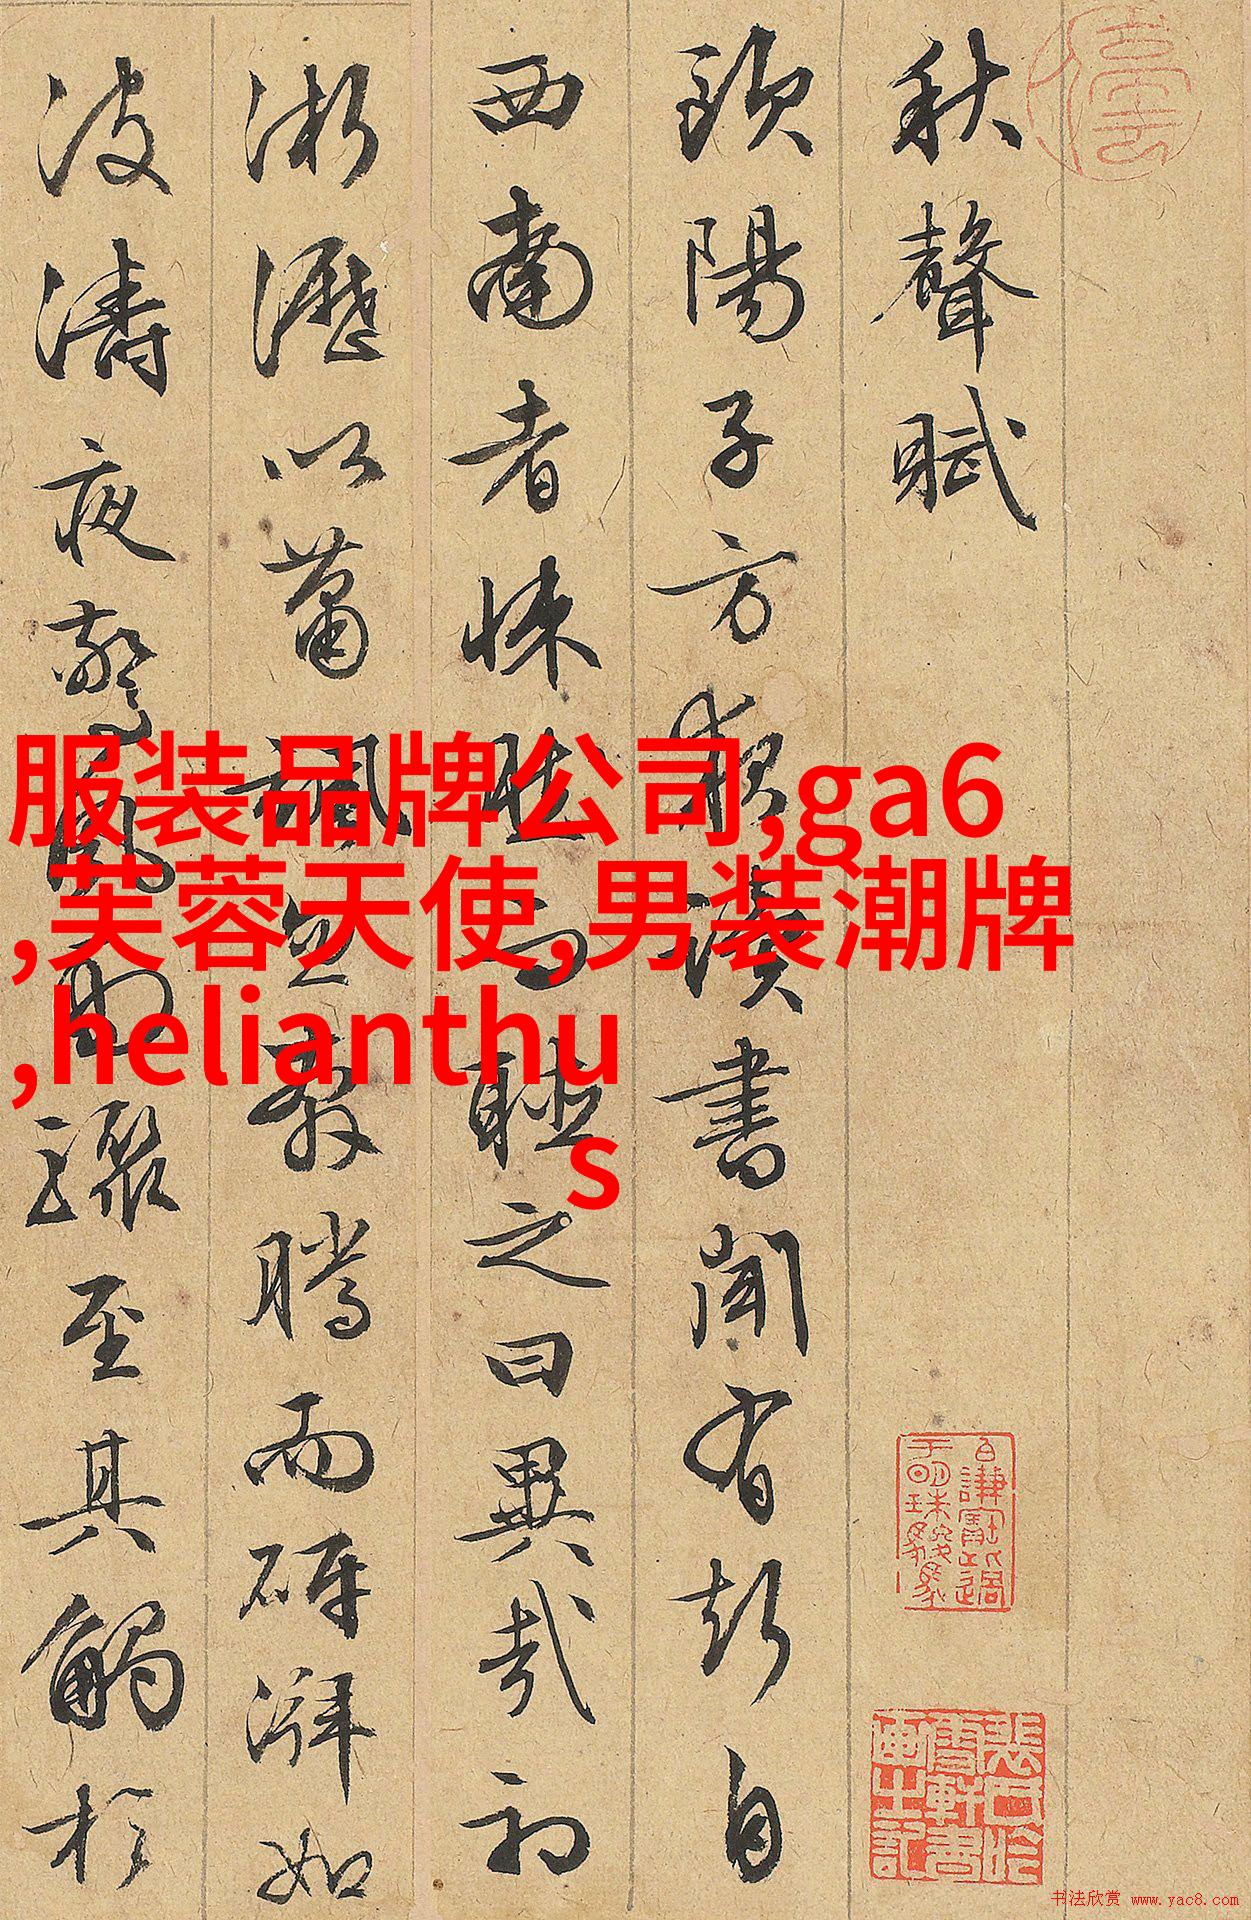 秋聲賦
歐陽子方夜讀書聞有聲自
西南者悚然而聽之曰異哉初
淅瀝以蕭颯忽奔騰而砰湃如
波濤夜驚風雨驟至其觸於
服装品牌公司,ga6
,芙蓉天使,男装潮牌
,helianthu
s
书法欣赏 www.yac8.com